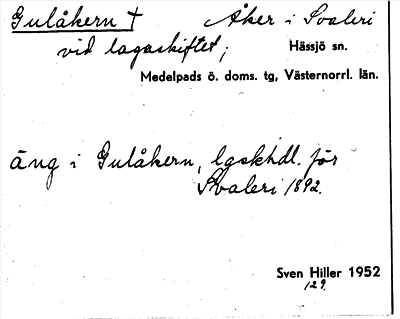 Gulåkern † Åker i Svaleri
vid lagaskiftet; Hässjö sn.
Medelpads ö. doms. tg, Västernorrl. län.
äng i Gulåkern, lgskhdl. för
Svaleri 1892.
Sven Hiller 1952
129.